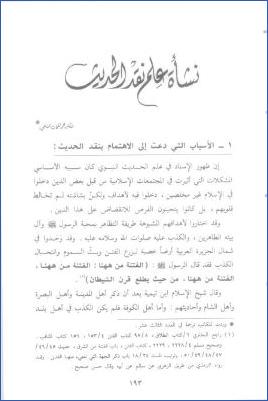 نشأة علم نقد الحديث
١ ــ الأسباب التي دعت إلى الاهتمام بنقد الحديث :
إن ظهور الإسناد في علم الحديث النبوي كان سببه الأساسي
المشكلات التي أثيرت في المجتمعات الإسلامية من قبل بعض الذين دخلوا
في الإسلام غير مخلصين ، دخلوا فيه لأهداف ولكن بشاشته لم تخالط
قلوبهم ، بل كانوا يتحينون الفرص للانقضاض على هذا الدين .
وقد اختاروا لأهدافهم المشبوهة طريقة التظاهر بمحبة الرسول ﷺ وآل
بيته الطاهرين ، والكذب عليه صلوات الله وسلامه عليه . وقد وجدوا في
شمال الجزيرة العربية أرضاً خصبة لزرع الفتن وبث السموم وانتحال
الكذب فقد قال الرسول ﷺ : ( الفتنة من ههنا ، الفتنة من ههنا ،
الفتنة من ههنا ، من حيث يطلع قرن الشيطان )(١) .
وقال شيخ الإسلام ابن تيمية بعد أن ذكر أهل المدينة وأهل البصرة
وأهل الشام وأحاديثهم : وأما أهل الكوفة فلم يكن الكذب في أهل بلد
١٩٣